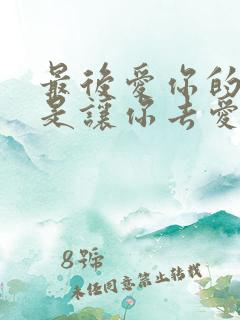 最後愛你的
是讓你去愛
8號
未經同意禁止轉載